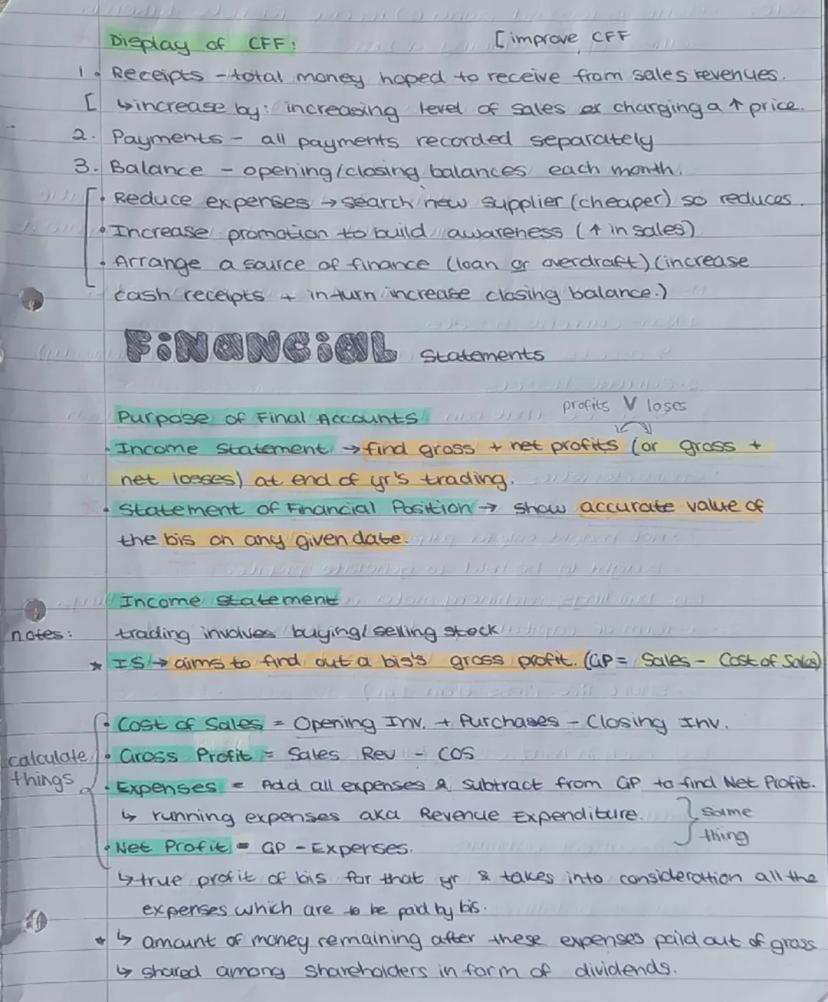 Display of CFF: [improve CFF
1. Receipts - total money hoped to receive from sales revenues.
[ ↳increase by: increasing level of sales or charging a ↑ price.
2. Payments - all payments recorded separately
3. Balance - opening/closing balances each month.
[• Reduce expenses → search new supplier (cheaper) so reduces.
• Increase promotion to build awareness (↑ in sales)
• Arrange a source of finance (loan or overdraft) (increase
cash receipts + in turn increase closing balance.)
FINANCIAL Statements
Purpose of Final Accounts profits V loses
• Income Statement → find gross + net profits (or gross +
net losses) at end of yr's trading.
• Statement of Financial Position → show accurate value of
the bis on any given date.
Income Statement
notes: trading involves buying/selling stock
* IS → aims to find out a bis's gross profit. (GP = Sales - Cost of Sales)
• Cost of Sales = Opening Inv. + Purchases - Closing Inv.
calculate • Gross Profit = Sales Rev - COS
things • Expenses = Add all expenses & subtract from GP to find Net Profit.
↳ running expenses aka Revenue Expenditure. } same
• Net Profit = GP - Expenses. thing
↳true profit of bis for that yr & takes into consideration all the
expenses which are to be paid by bis.
* ↳ amount of money remaining after these expenses paid out of gross
↳ shared among shareholders in form of dividends.